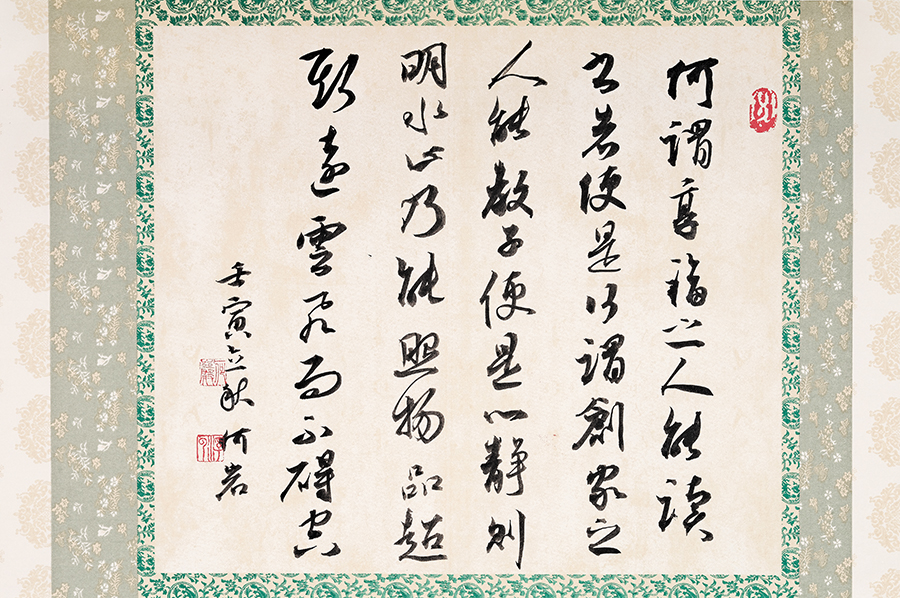 何謂享福之人能讀
書者便是何謂創家之
人能教子便是心靜則
明水止乃能照物品超
斯遠雲飛而不礙空
壬寅立秋 何岩